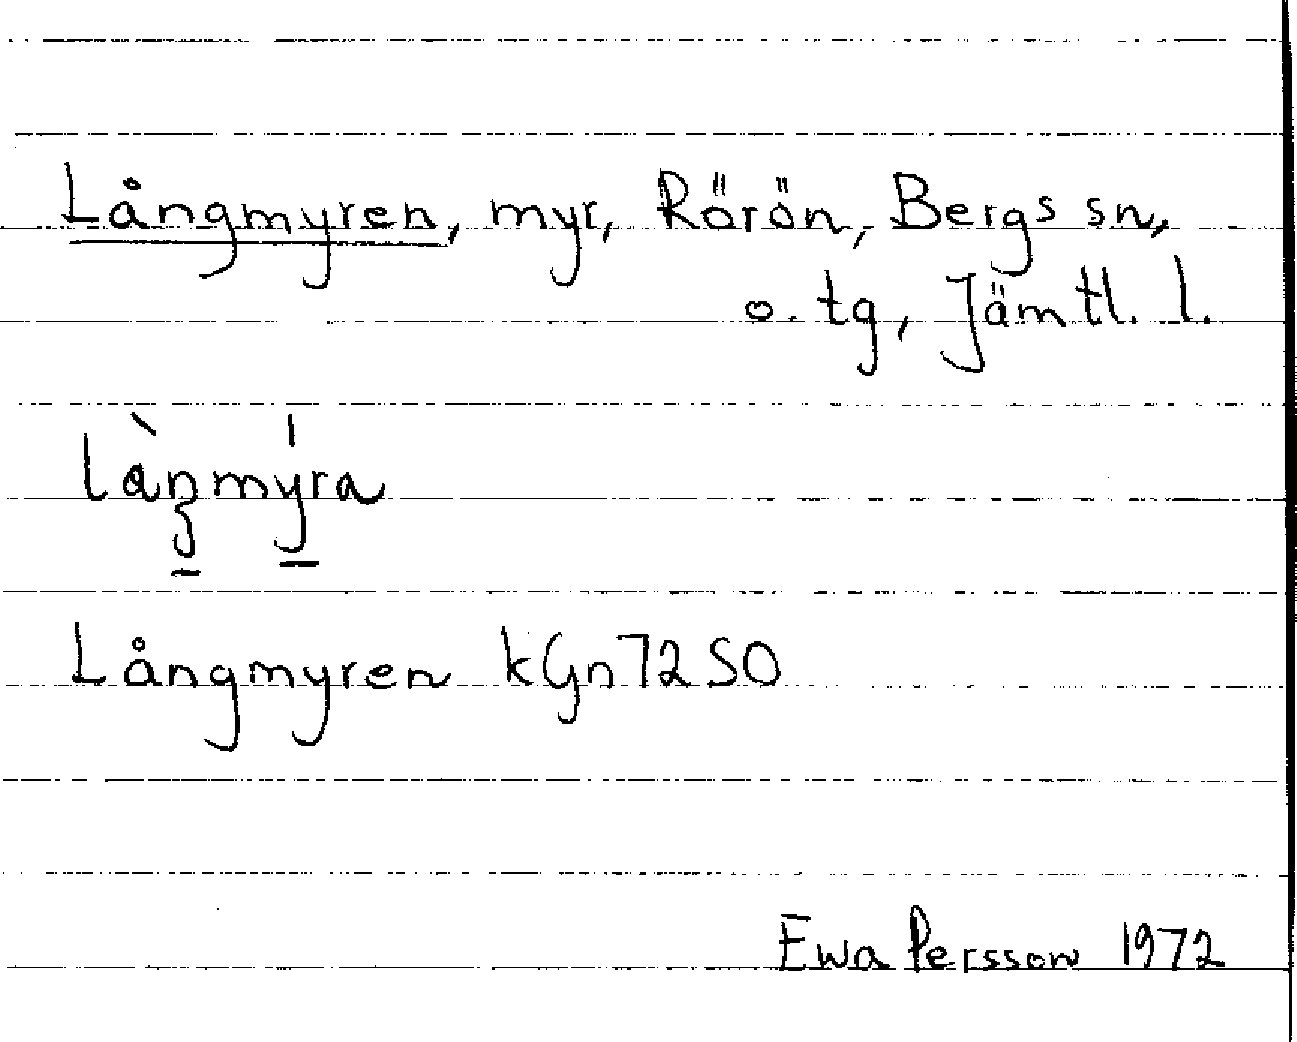 Långmyren, myr, Rörön, Bergs sn,
o. tg, Jämtl. l.
làŋmýra
Långmyren kGn72SO
Ewa Persson 1972